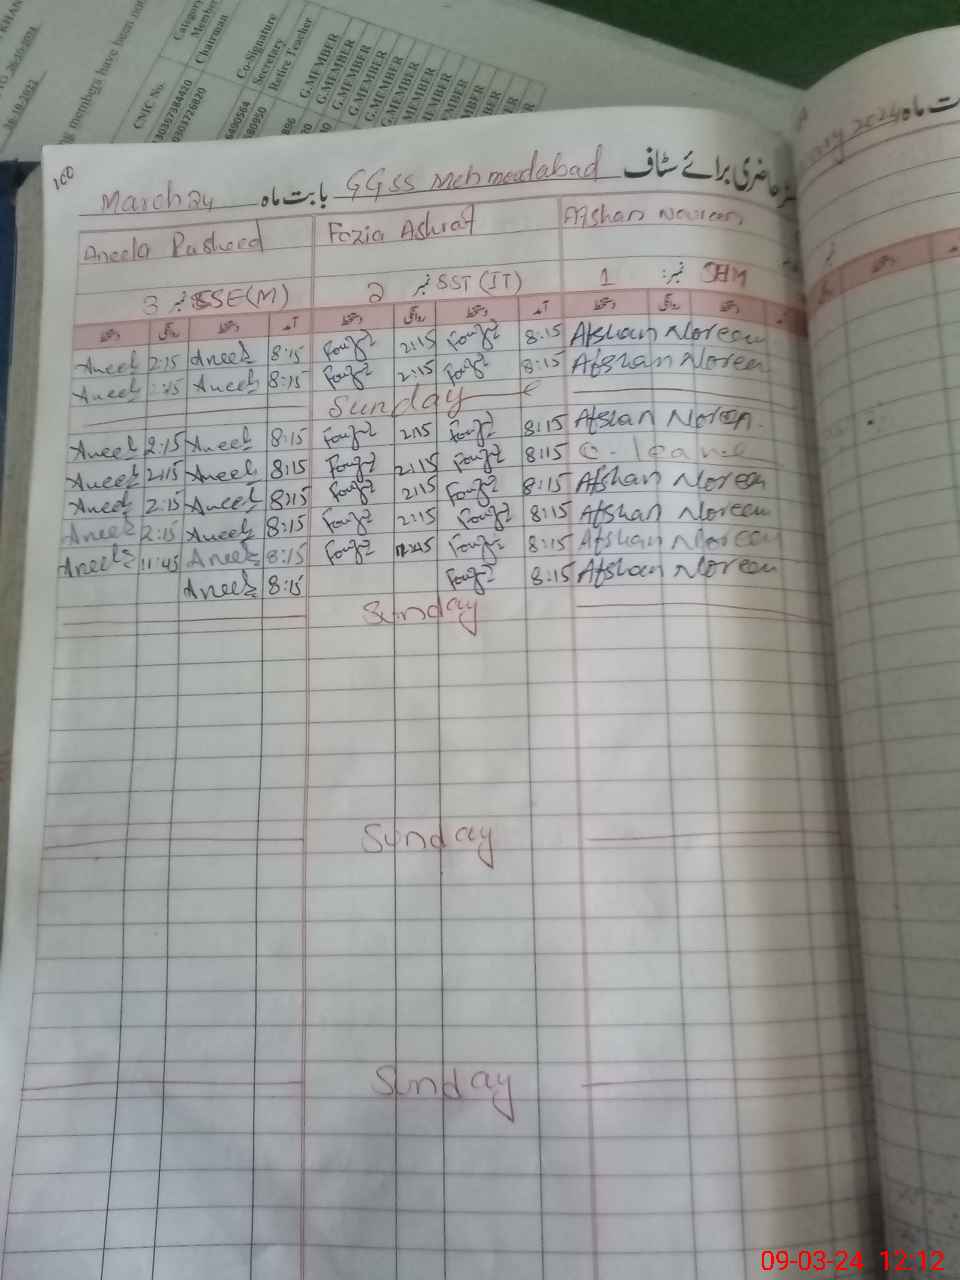 KHAN
TO 26-10-2024
26-10-2023
members have been
CNIC No.
Category
Member
Chairman
Co-Signature
Secretary
Retire Teacher
G.MEMBER
G.MEMBER
G.MEMBER
G.MEMBER
G.MEMBER
G.MEMBER
G.MEMBER
G.MEMBER
100
حاضری برائے سٹاف GGSS Mehmeedabad بابت ماہ March 24
ت ماہ 2024
Aneela Rasheed Fozia Ashraf Afshan Noureen
3 نمبر SSE(M) 2 نمبر SST (IT) 1 نمبر: SHM
دستخط روانگی دستخط آمد دستخط روانگی دستخط آمد دستخط روانگی دستخط
Aneela 2:15 Aneela 8:15 Fouzia 2:15 Fouzia 8:15 Afshan Noreen
Aneela :15 Aneela 8:15 Fouzia 2:15 Fouzia 8:15 Afshan Noreen
Sunday
Aneela 2:15 Aneela 8:15 Fouzia 2:15 Fouzia 8:15 Afshan Noreen
Aneela 2:15 Aneela 8:15 Fouzia 2:15 Fouzia 8:15 C. leave
Aneela 2:15 Aneela 8:15 Fouzia 2:15 Fouzia 8:15 Afshan Noreen
Aneela 2:15 Aneela 8:15 Fouzia 2:15 Fouzia 8:15 Afshan Noreen
Aneela 11:45 Aneela 8:15 Fouzia 12:45 Fouzia 8:15 Afshan Noreen
Aneela 8:15 Fouzia 8:15 Afshan Noreen
Sunday
Sunday
Sunday
09-03-24 12:12